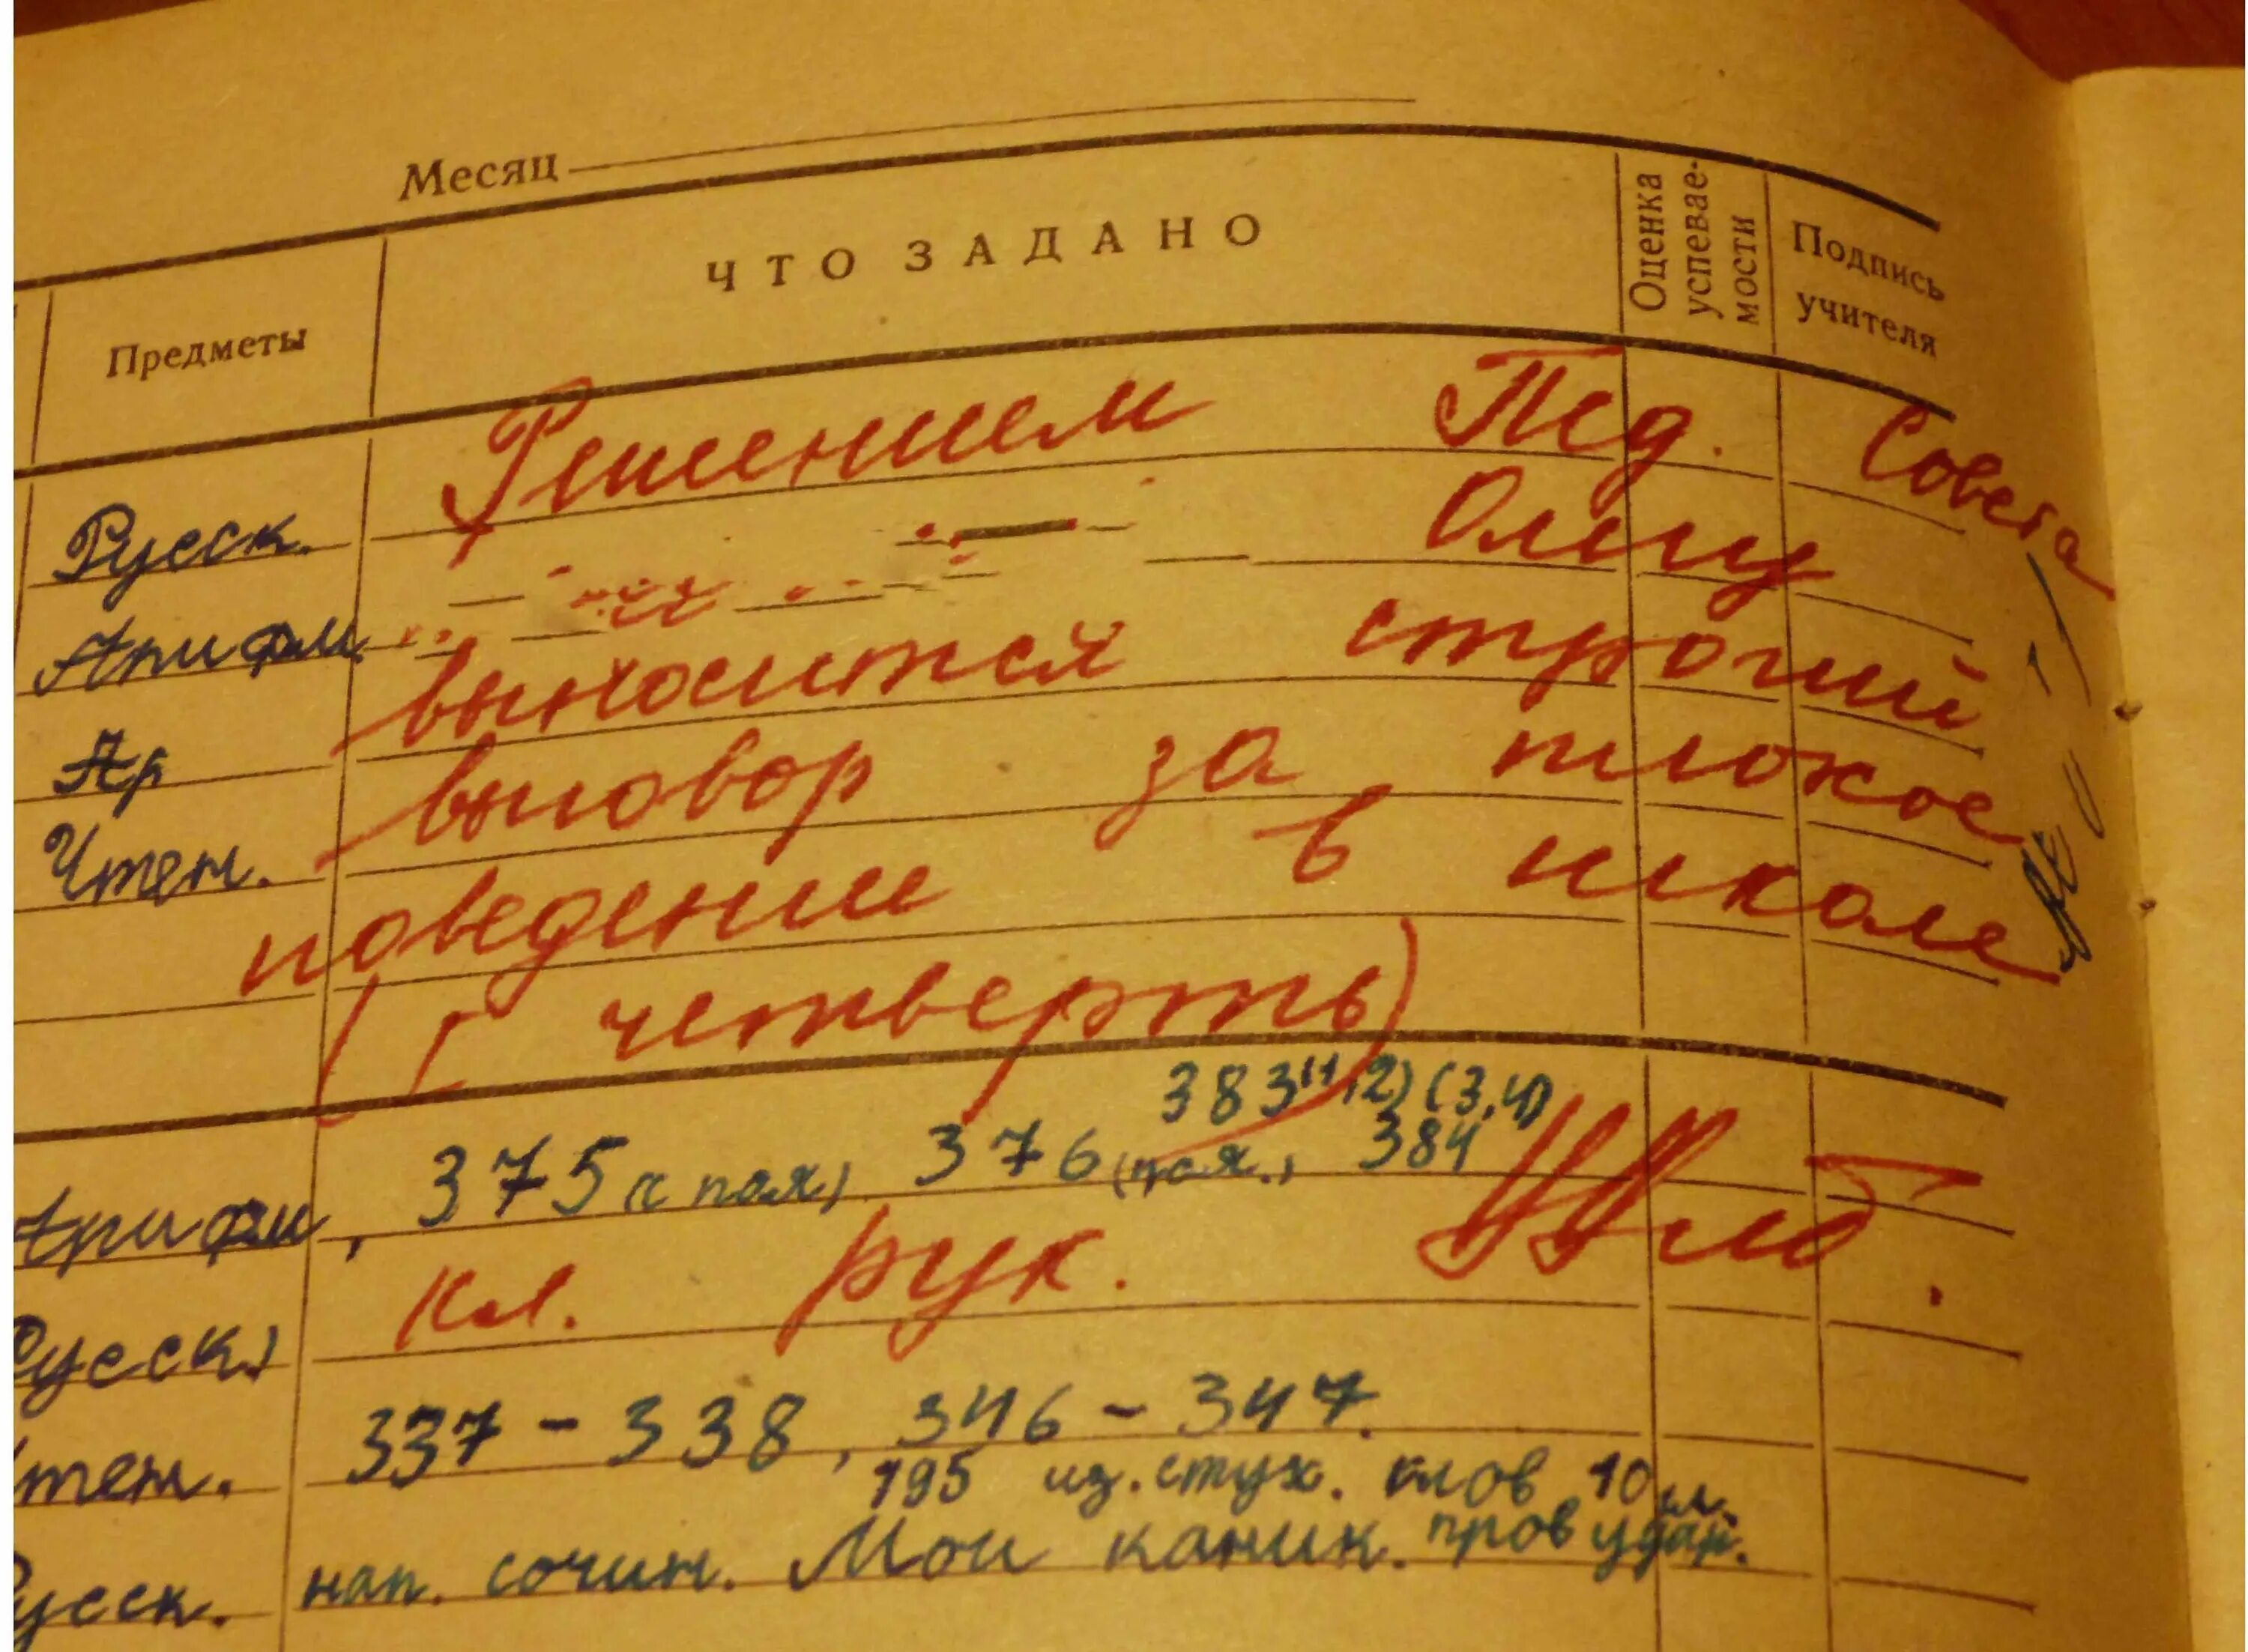 Месяц
Предметы
ЧТО ЗАДАНО
Оценка успеваемости
Подпись учителя
Решением Пед. Совета
Русск.
Ольгу
Арифм.
выносится строгий
Ар
выговор за плохое
Чтен.
поведении в школе
(I четверть)
383 (1,2) (3,4)
Арифм, 375 (с поя) 376 (поя., 384
кл. рук.
Русск.
Чтен. 337 – 338, 346 – 347.
195 из. стух. слов 10
Русск. нап. сочин. Мои каник. пров удар.